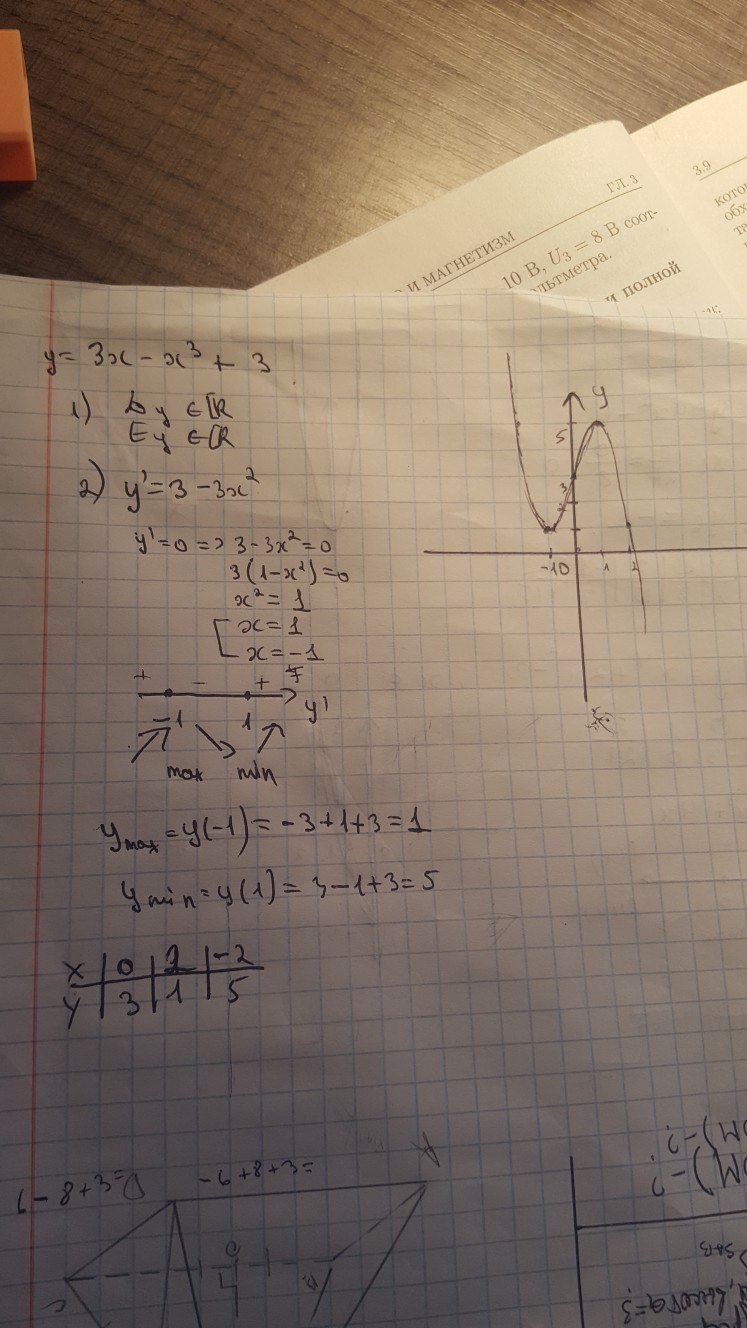 ГЛ.3
3.9
О И МАГНЕТИЗМ
10 В, U₃ = 8 В соот-
ольтметра.
и полной
y = 3x - x³ + 3
1) Dy ∈ ℝ
Ey ∈ ℝ
2) y' = 3 - 3x²
y' = 0 => 3 - 3x² = 0
3(1 - x²) = 0
x² = 1
x = 1
x = -1
+ - +
-1 1 y'
max min
y max = y(-1) = -3+1+3 = 1
y min = y(1) = 3-1+3 = 5
x | 0 | 2 | -2
y | 3 | 1 | 5
y
5
3
-1 0 1 2
-6+8+3=